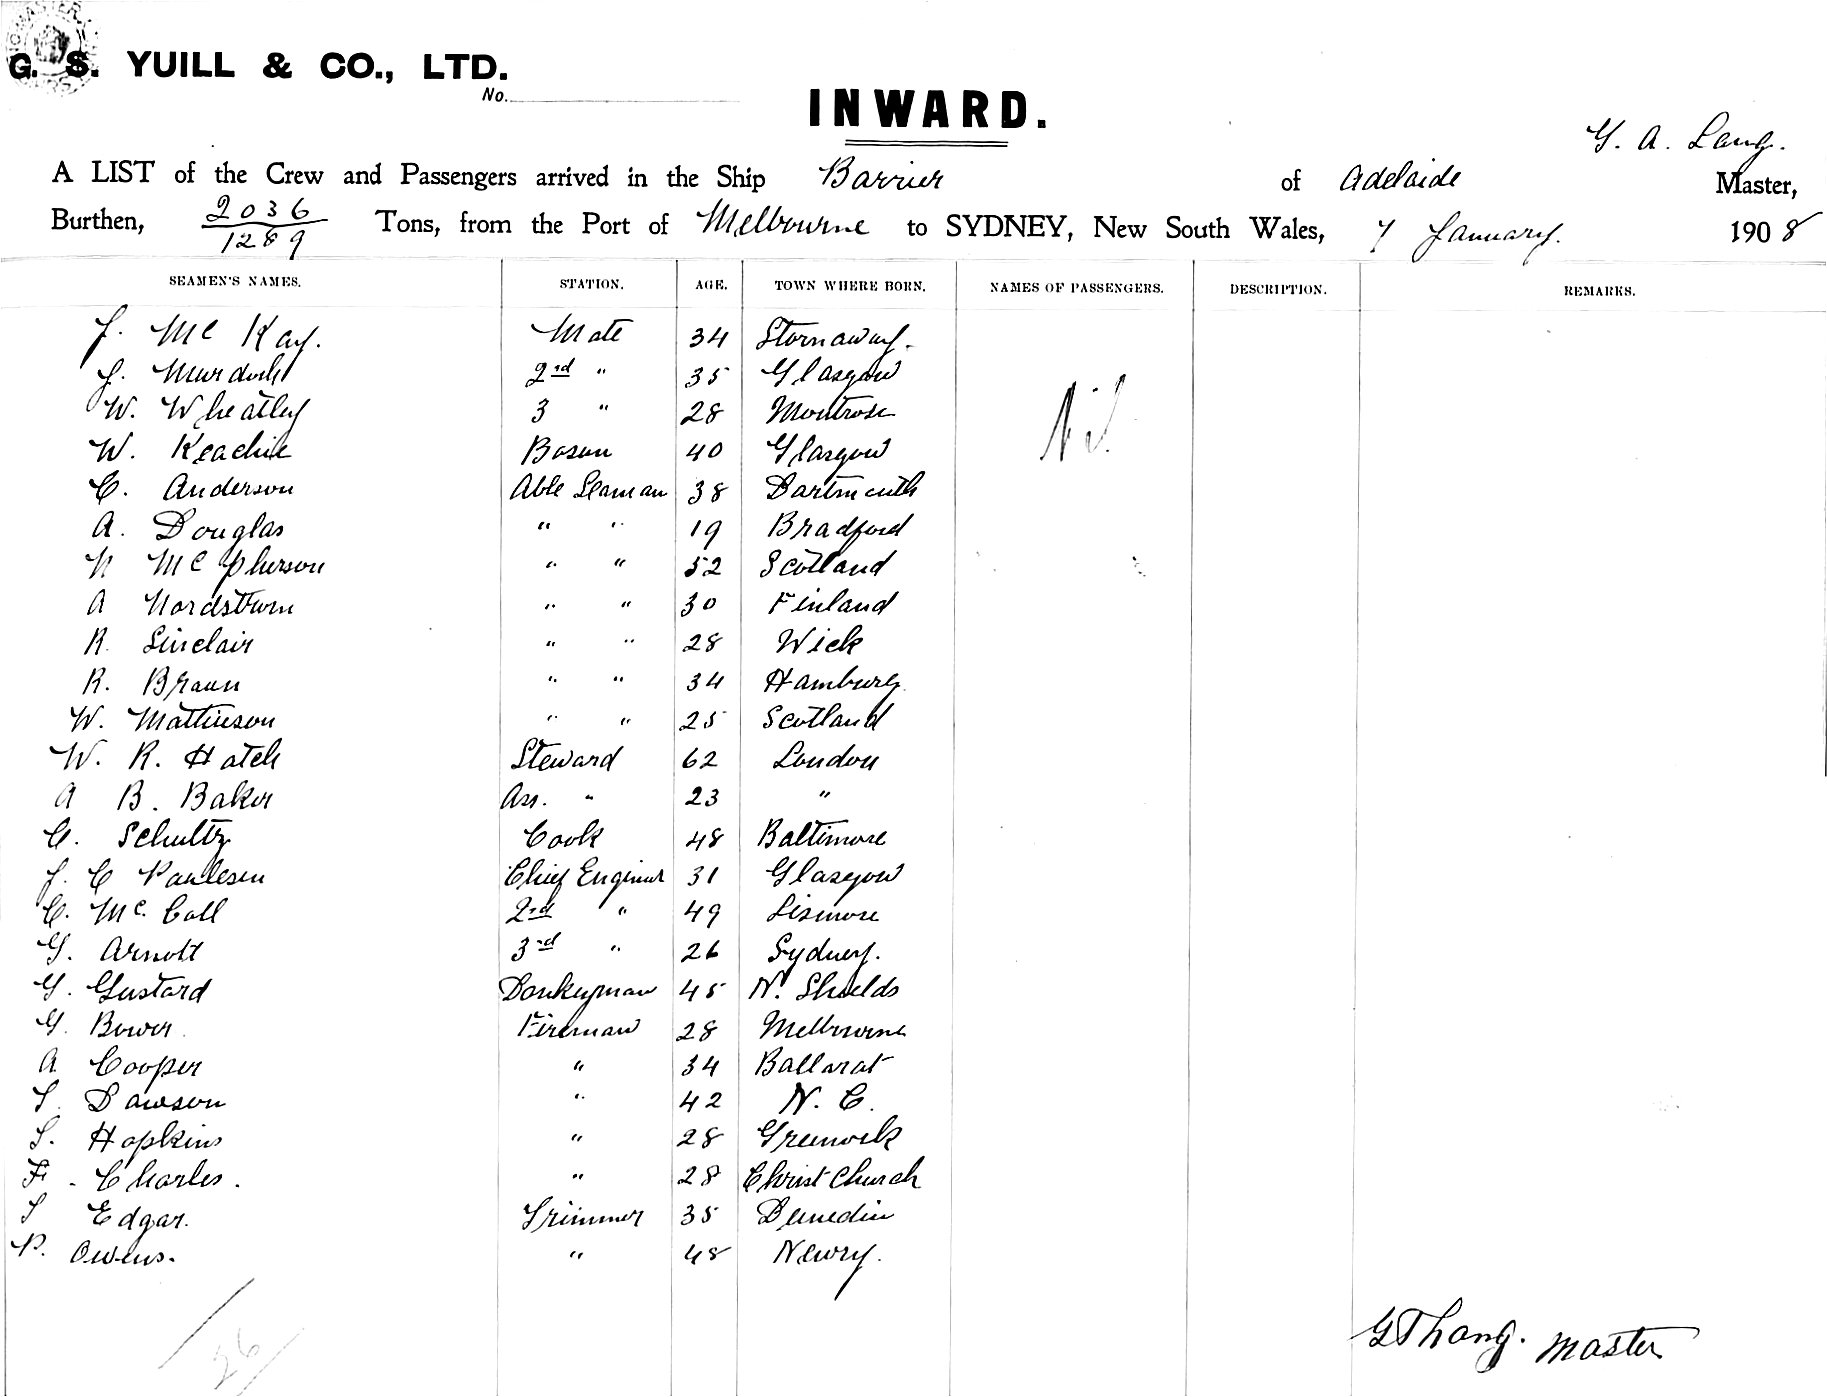 G. S. YUILL & CO., LTD.
No.
INWARD.
G. A. Lang.
A LIST of the Crew and Passengers arrived in the Ship Barrier of Adelaide Master,
Burthen, 2036 Tons, from the Port of Melbourne to SYDNEY, New South Wales, 7 January. 1908
1289
SEAMEN'S NAMES. STATION. AGE. TOWN WHERE BORN. NAMES OF PASSENGERS. DESCRIPTION. REMARKS.
J. Mc Kay. Mate 34 Stornaway.
J. Murdoch 2nd " 35 Glasgow
W. Wheatley 3 " 28 Montrose Nil.
W. Keachie Bosun 40 Glasgow
C. Anderson Able Seaman 38 Dartmouth
A. Douglas " " 19 Bradford
N McPherson " " 52 Scotland
A Nordstrom " " 30 Finland
R. Sinclair " " 28 Wick
R. Braun " " 34 Hamburg
W. Mattieson " " 25 Scotland
W. R. Hatch Steward 62 London
A B. Baker Ass. " 23 "
C. Schultz Cook 48 Baltimore
J. C Paulesen Chief Engineer 31 Glasgow
C. Mc. Coll 2nd " 49 Lismore
G. Arnott 3rd " 26 Sydney.
G. Gustard Donkeyman 45 N. Shields
G. Bower Fireman 28 Melbourne
A Cooper " 34 Ballarat
S. Dawson " 42 N. C.
S. Hopkins " 28 Greenock
F. Charles. " 28 Christ Church
S Edgar. Trimmer 35 Dunedin
P. Owens. " 48 Newry.
26
Lang. Master